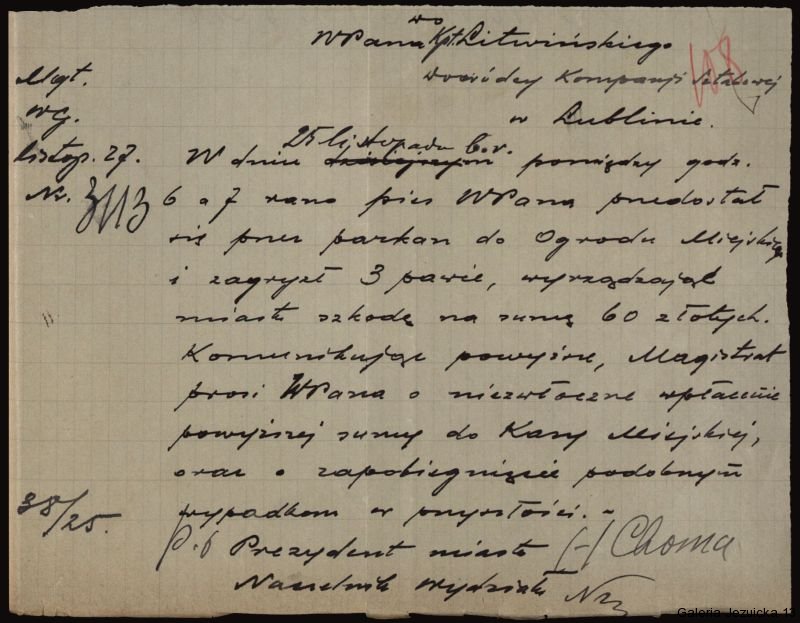 do
WPana Kpt. Litwińskiego
108
dowódcy Kompanji Sztabowej
w Lublinie.
Mgt.
WG.
listop. 27.
Nr. 3113
25 listopada b.r.
W dniu dzisiejszym pomiędzy godz.
6 a 7 rano pies WPana przedostał
się przez parkan do Ogrodu Miejskiego
i zagryzł 3 pawie, wyrządzając
miastu szkodę na sumę 60 złotych.
Komunikując powyższe, Magistrat
prosi WPana o niezwłoczne wpłacenie
powyższej sumy do Kasy Miejskiej,
oraz o zapobiegnięcie podobnym
wypadkom w przyszłości. -
38/25.
p.o Prezydent miasta (-)
Naczelnik Wydziału
Galeria Jezuicka 13